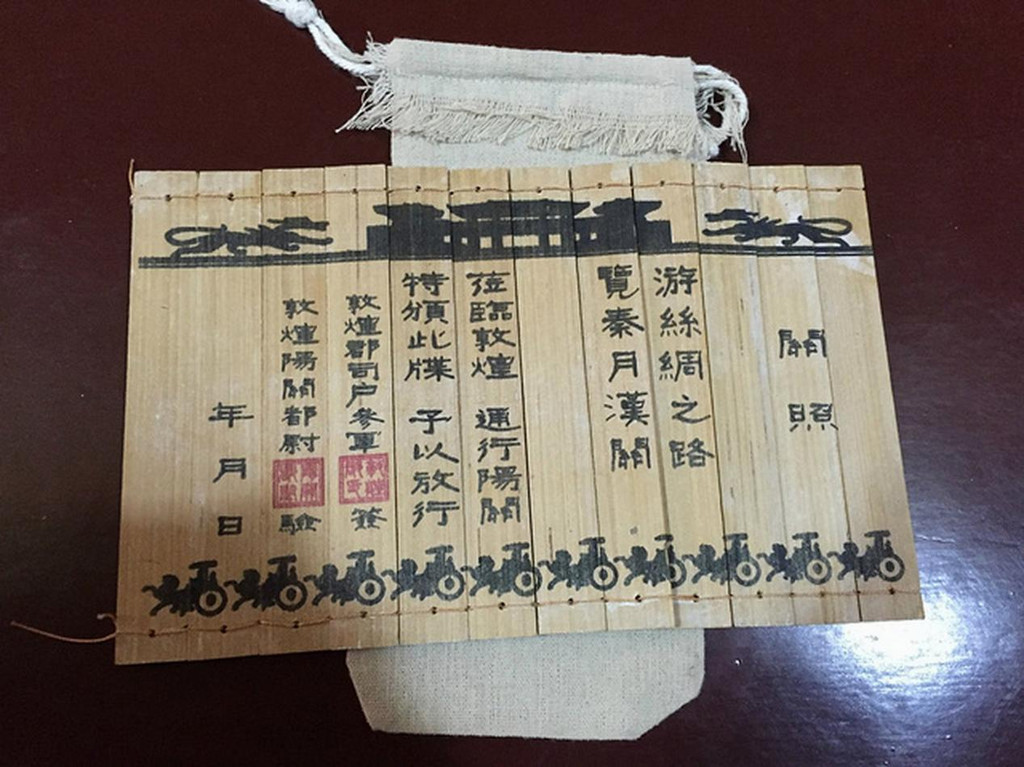 關照
游絲綢之路
覽秦月漢關
莅臨敦煌 通行陽關
特頒此牒 予以放行
敦煌郡司户參軍 簽
敦煌陽關都尉 驗
年月日